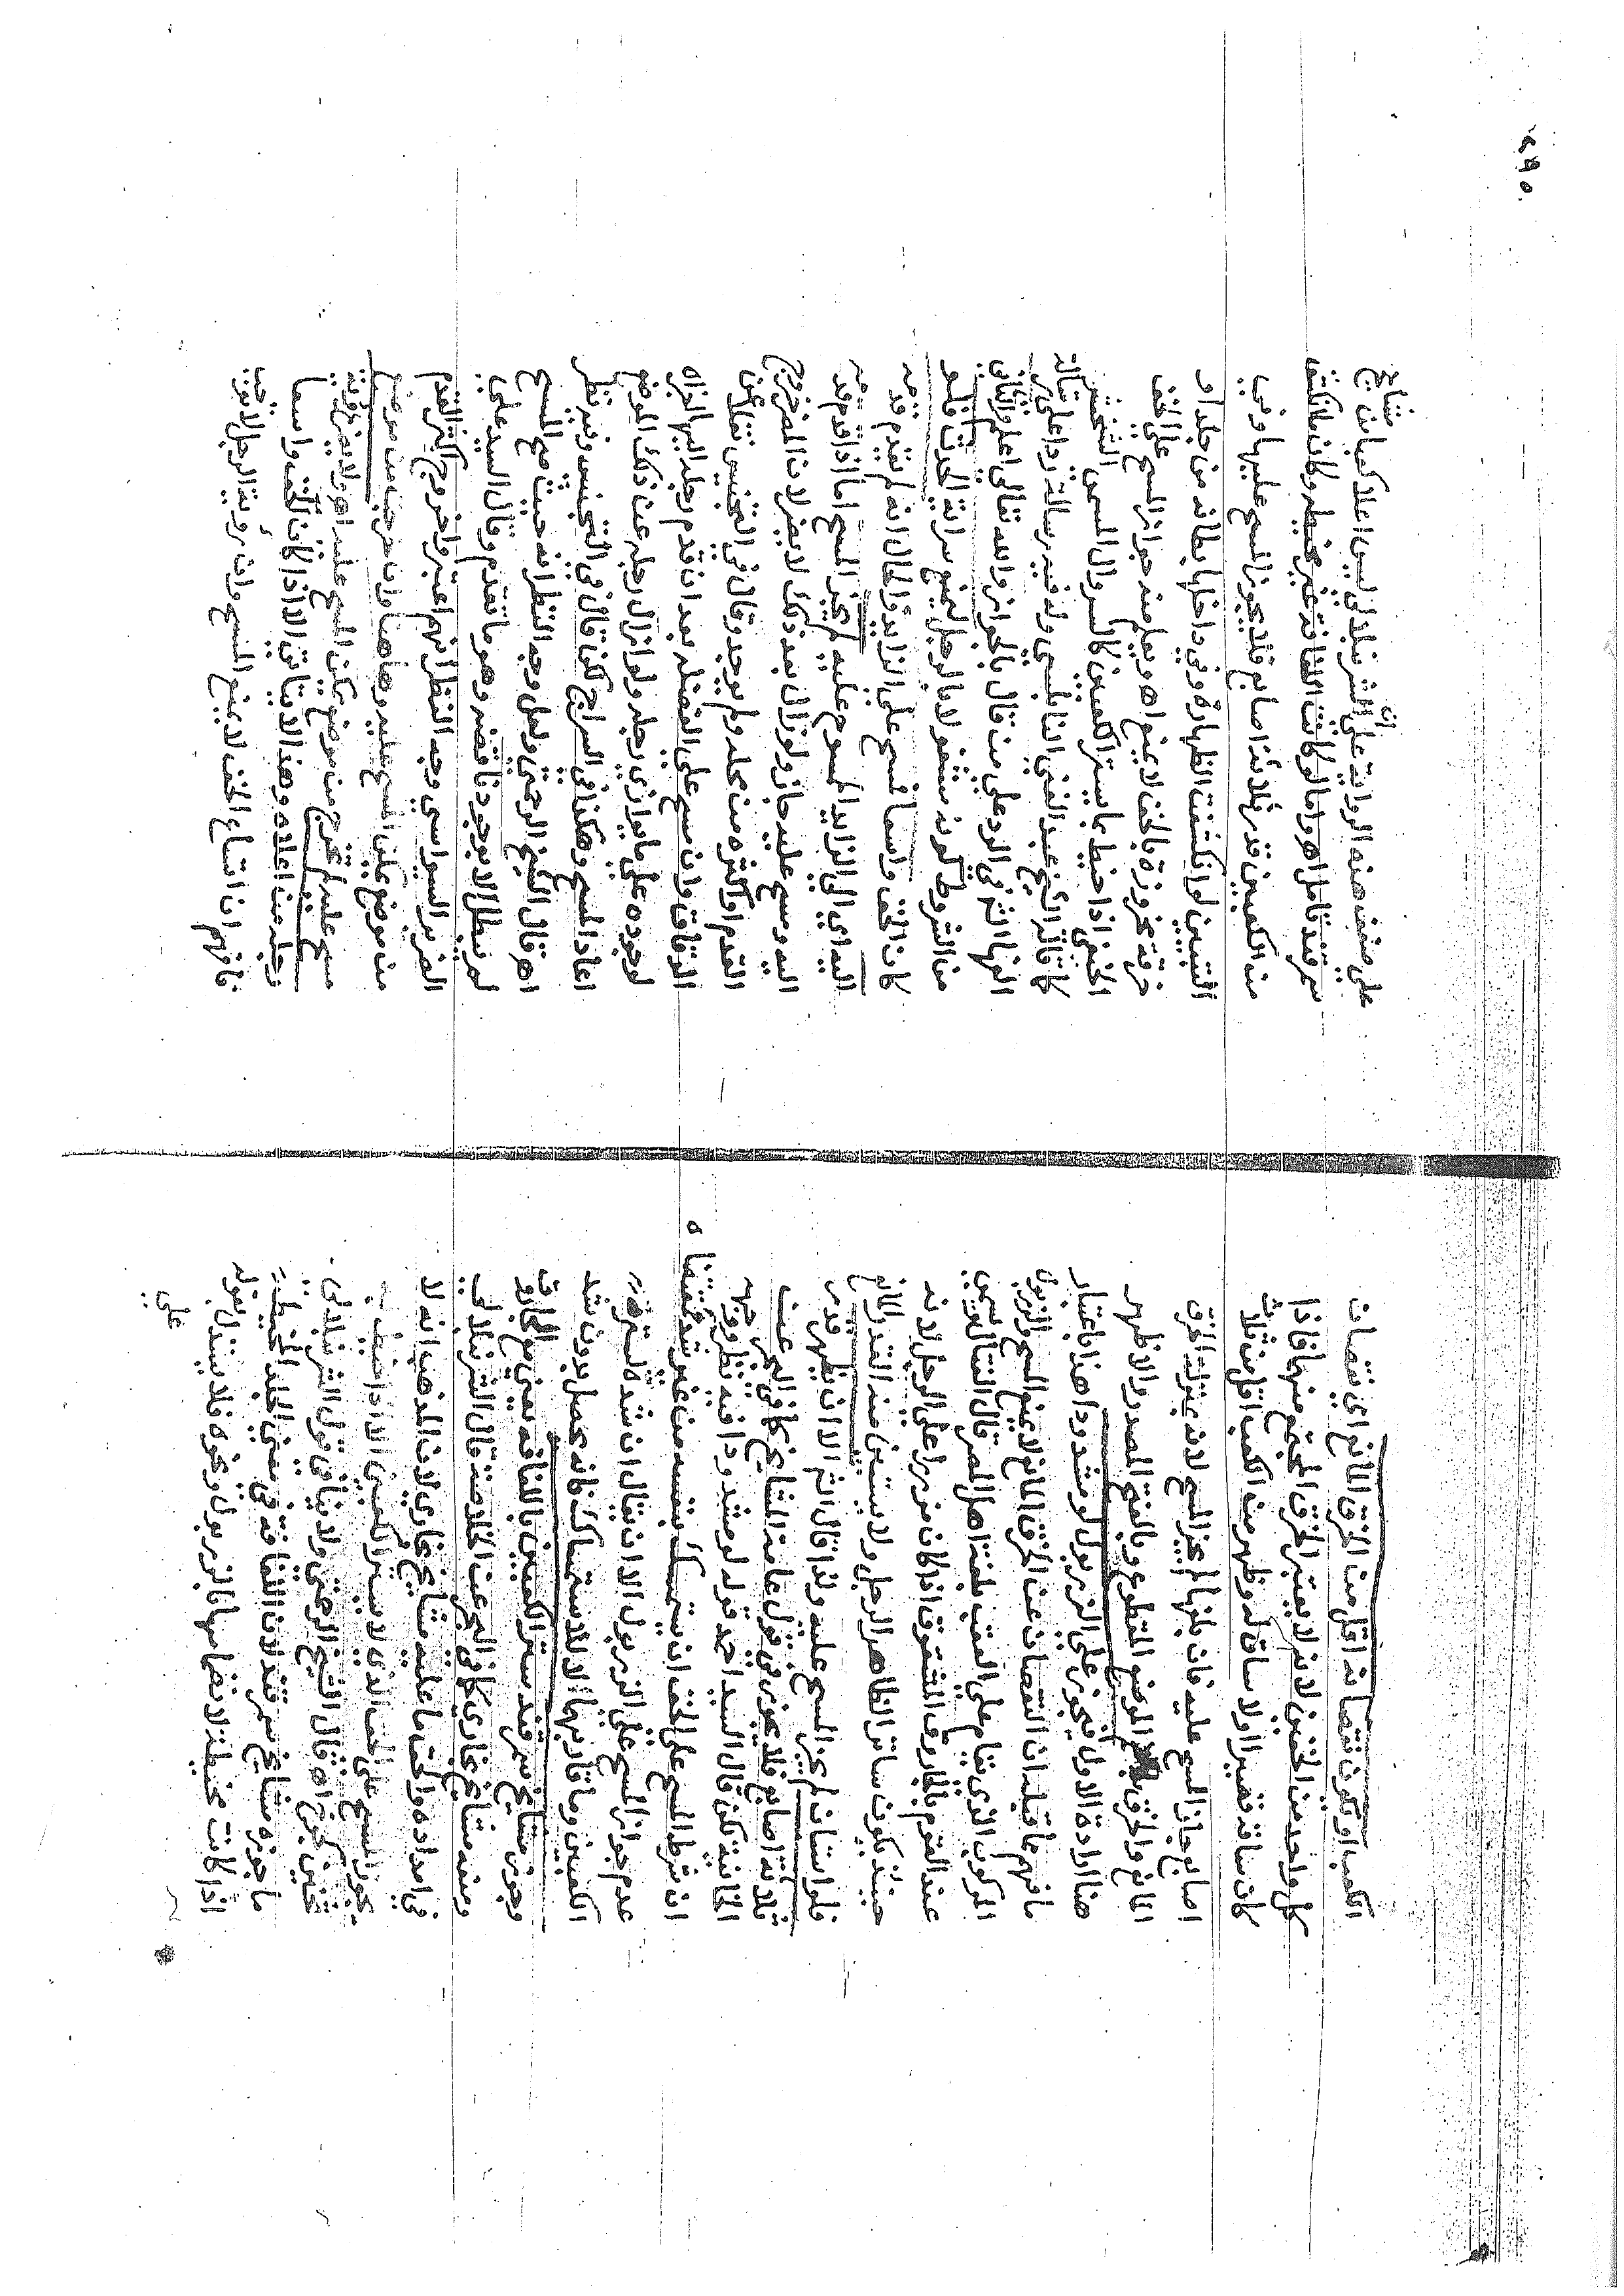 الكعب او يكون نقصانه اقل من الخرق المانع اي نقصان
كل واحد من الخفين لانه لا يعتبر الخرق المجتمع منهما فاذا
كان ساقه قصيرا او لا ساق له وظهر من الكعب اقل من ثلاث
اصابع جاز المسح عليه فان بلغها لم يجز المسح لانه بمنزلة الخرق
المانع والخرق بالضم الموضع المقطوع وبالفتح المصدر والاظهر
هنا ارادة الاول فيجوز على الزربول لو مشدودا هذا باعتبار
ما فهم مما قبله ان النقصان عن الخرق المانع لا يمنع المسح والزربول
المركوب الذي يقام على العقب بلغة اهل مصر قال الفتال يسمى
عند القوم بالجاروق المشقوق اذا كان مزررا على الرجل لانه
حينئذ يكون ساتر الظاهر الرجل ولا يستثنى منه القدر المانع
فلو استبان لم يجز المسح عليه ولذا قال اثم الا ان يظهر قدر
ثلاثة اصابع فلا يجوز في قول عامة المشايخ كما في البحر عن
الخانية لكن قال السيد احمد قوله لو مشدودا فيه نظر ووجهه
ان شرط المسح على الخف ان يستمسك بنفسه من غير شد فمقتضاه
عدم جواز المسح على الزربول الا ان يقال ان شده لستر
الكعبين وما قاربهما لا للاستمساك فانه يحصل بدون شد
وجوز مشايخ سمرقند ستر الكعبين باللفافة يعني مع الجاروق
ومنعه مشايخ بخارى كما في البحر عن الخلاصة قال الشرنبلالي
في امداده والحق ما عليه مشايخ بخارى لان المذهب انه لا
يجوز المسح على الخف الذي لا يستر الكعبين الا اذا خيط به
ثخين كجوخ اه قال الشيخ الرحمتي ولا ينافي قول الشرنبلالي
ما جوزه مشايخ سمرقند لان اللفافة في معنى الجلد المخيط به
اذا كانت مخيطة لانضمامها بالزربول ونحوه فلا يستدل بقوله
على
على ضعف هذه الرواية على ان الشرنبلالي ليس اعلا كعبا من مشايخ
سمرقند تامل اه واما لو كانت اللفافة غير مخيطة وكان ما انكشف
من الكعبين قدر ثلاثة اصابع فلا يجوز المسح عليها وفي
التبيين لو انكشفت الظهارة وفي داخلها بطانة من جلد او
خرقة مخروزة بالخف لا يمنع اه ويعلم منه جواز المسح على الخف
الحنفي اذا خيط بما يستر الكعبين كالسروال المسمى الشخشير
كما قاله الشيخ عبد الغني النابلسي وله فيه رسالة ردا على رسالة
الفها اثم في الرد على من قال بالجواز والله تعالى اعلم والثاني
من الشروط كونه مشغولا بالرجل ليمنع سراية الحدث فلو
كان الخف واسعا فمسح على الزايد والحال انه لم يقدم قدمه
اليه اي الى الزايد الممسوح عليه لم يجز المسح اما اذا قدم قدمه
اليه ومسح عليه جاز ولو زال بعد ذلك لا يضر لان المضر خروج
القدم او اكثره من محله ولم يوجد وقال في التجنيس نقلا عن
الدقاق وان مسح على الفضلة بعد ان قدم رجله اليها اجزاه
لوجوده على ما يوازي رجله ولو ازال رجله عن ذلك الموضع
اعاد المسح وهكذا في السراج لكن قال في التجنيس وفيه نظر
اه قال الشيخ الرحمتي ولعل وجه النظر انه حيث صح المسح
لم يبطل الا بوجود ناقضه وهو ما تقدم وقال السيد علي
الضرير السيواسي وجه النظر انهم اعتبروا خروج اكثر القدم
من موضع يمكن المسح عليه وهاهنا وان خرجت من موضع
مسح عليه لم تخرج من موضع يمكن المسح عليه اه ولا يضر رؤية
رجله من اعلاه وهذا لا يتاتى الا اذا كان الخف واسعا
فافهم ان اتساع الخف لا يمنع المسح وان رؤية الرجل